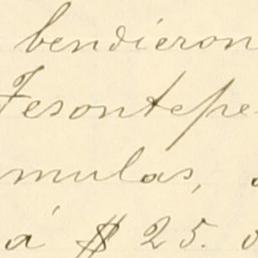 bendieron
Tesontepe
mulas,
á $ 25.